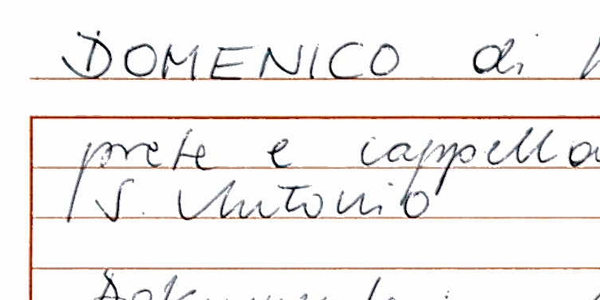 DOMENICO di
prete e cappella
S. Antonio